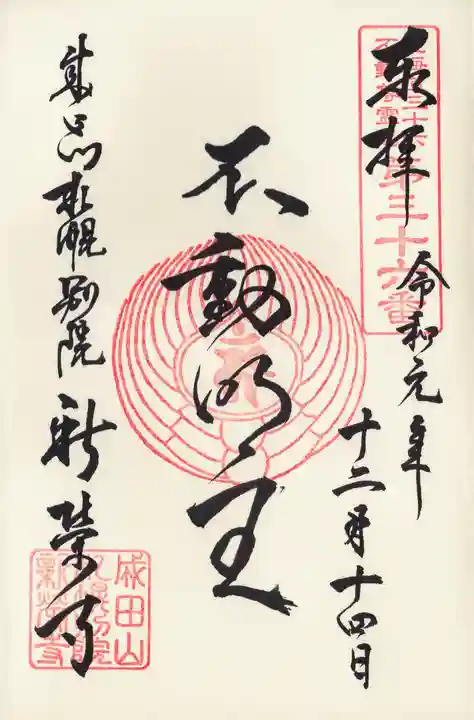 奉拝
令和元年
十二月十四日
北海道三十六
不動尊霊場
第三十六番
不動明王
成田山札幌別院 新榮寺
成田山
札幌別院
新榮寺